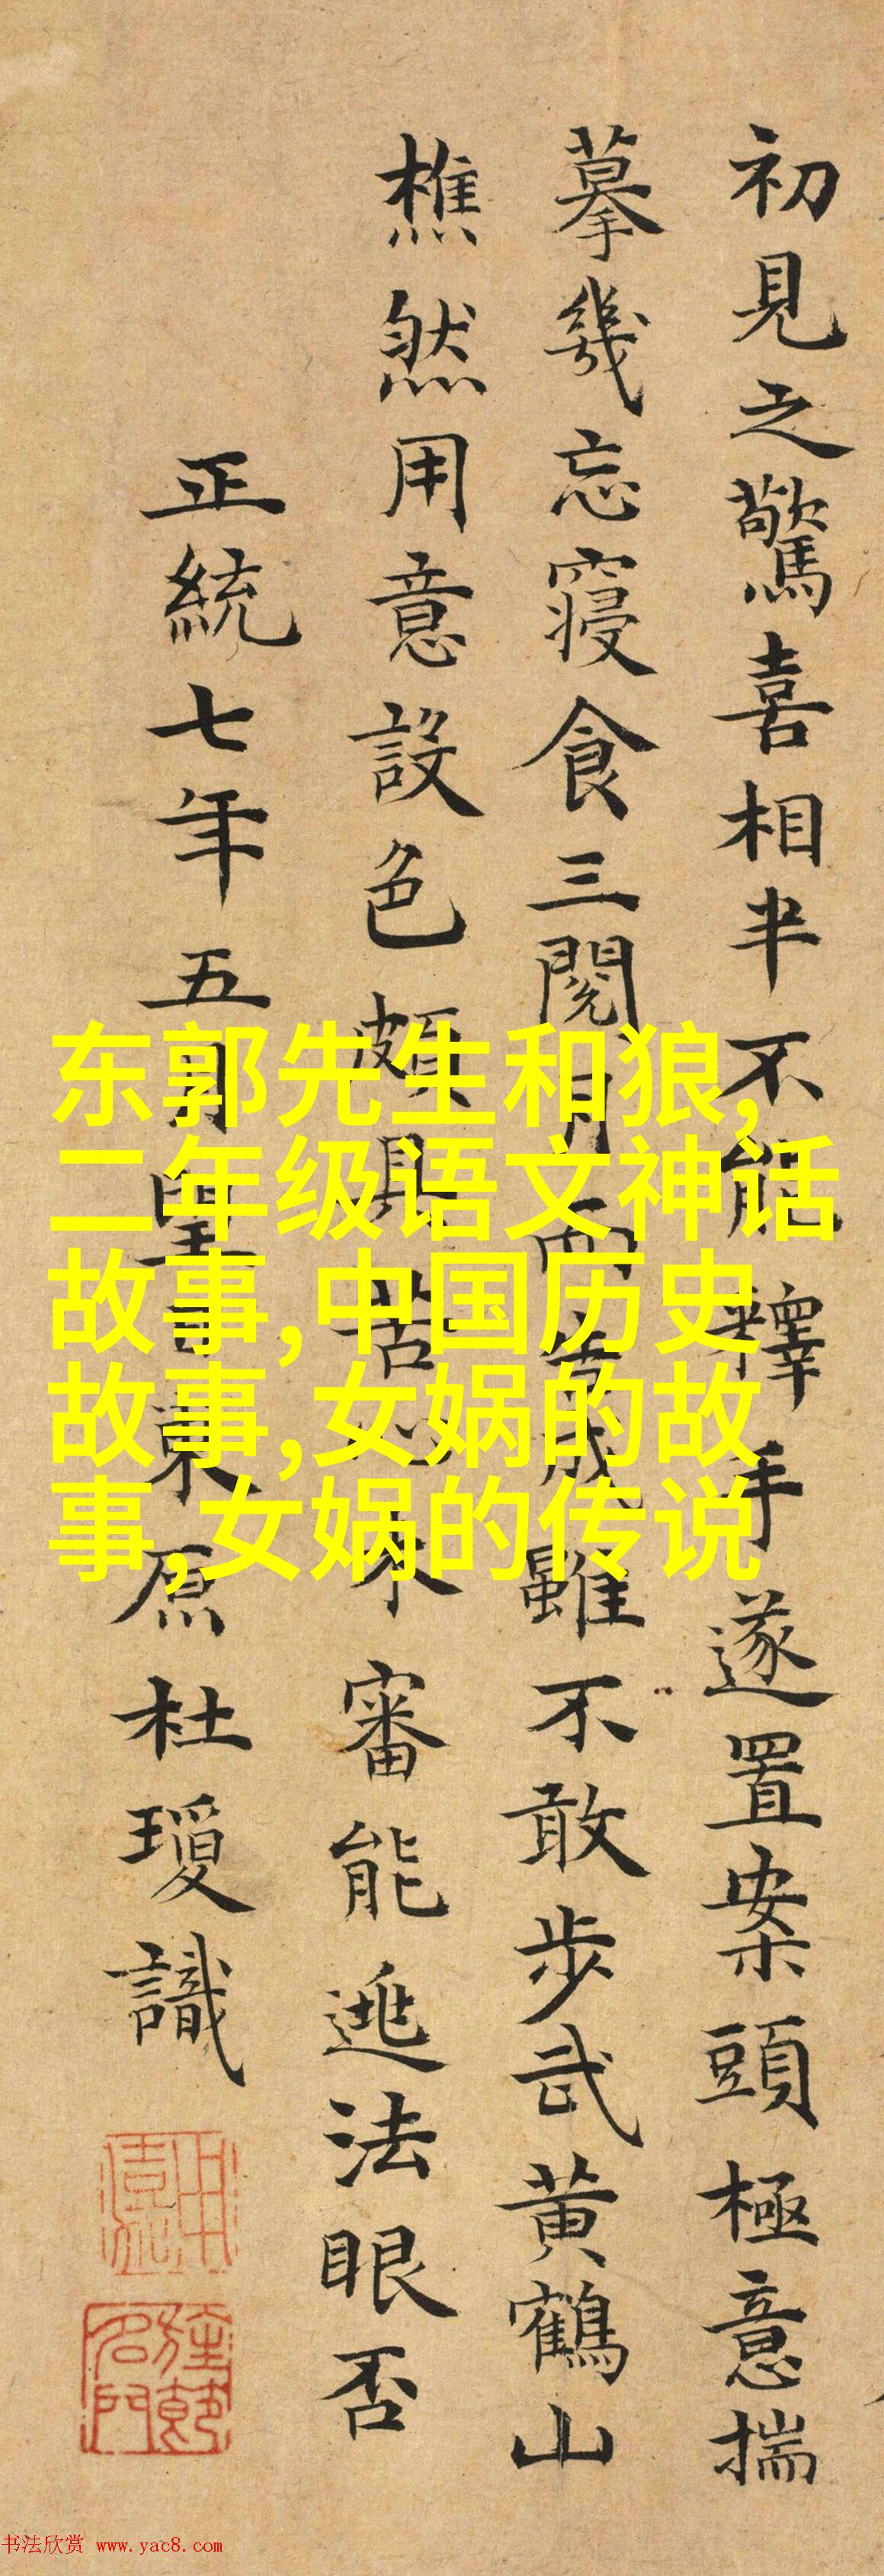 初見之驚喜相半不能釋手遂置案頭極意揣
摹幾忘寢食三閱月而告成雖不敢步武黃鶴山
樵然用意設色頗具苦心未審能逃法眼否
正統七年五月望日東原杜瓊識
东郭先生和狼,
二年级语文神话
故事,中国历史
故事,女娲的故
事,女娲的传说
书法欣赏 www.yac8.com